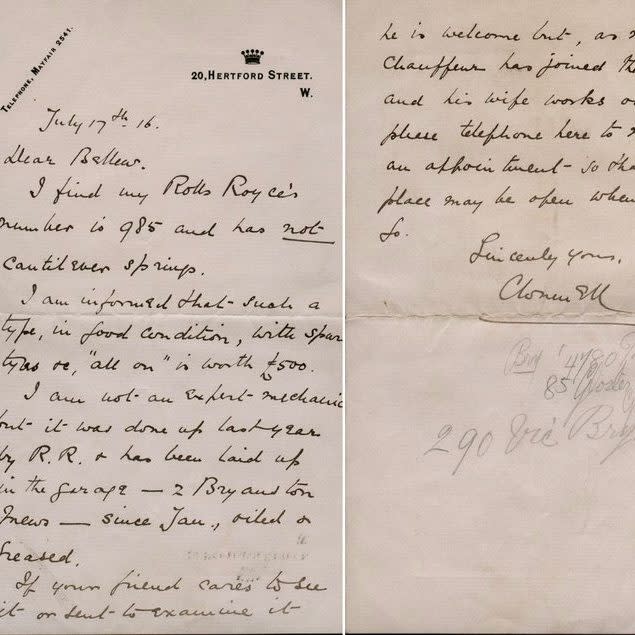 Telephone, Mayfair 2541.
20, Hertford Street.
W.
July 17th 16.
Dear Bellew.
I find my Rolls Royce's
number is 985 and has not
cantilever springs.
I am informed that such a
type, in good condition, with spar
tyres &c, "all on" is worth £500.
I am not an expert mechanic
but it was done up last year
by R.R. & has been laid up
in the garage — 2 Bryanston
Mews — since Jan., oiled &
greased.
If your friend cares to see
it or send to examine it
he is welcome but, as
Chauffeur has joined th
and his wife works
please telephone here to
an appointment - so tha
place may be open when
so.
Sincerely yours,
Clonmell
Bry 4780
85
290 Vic Bry